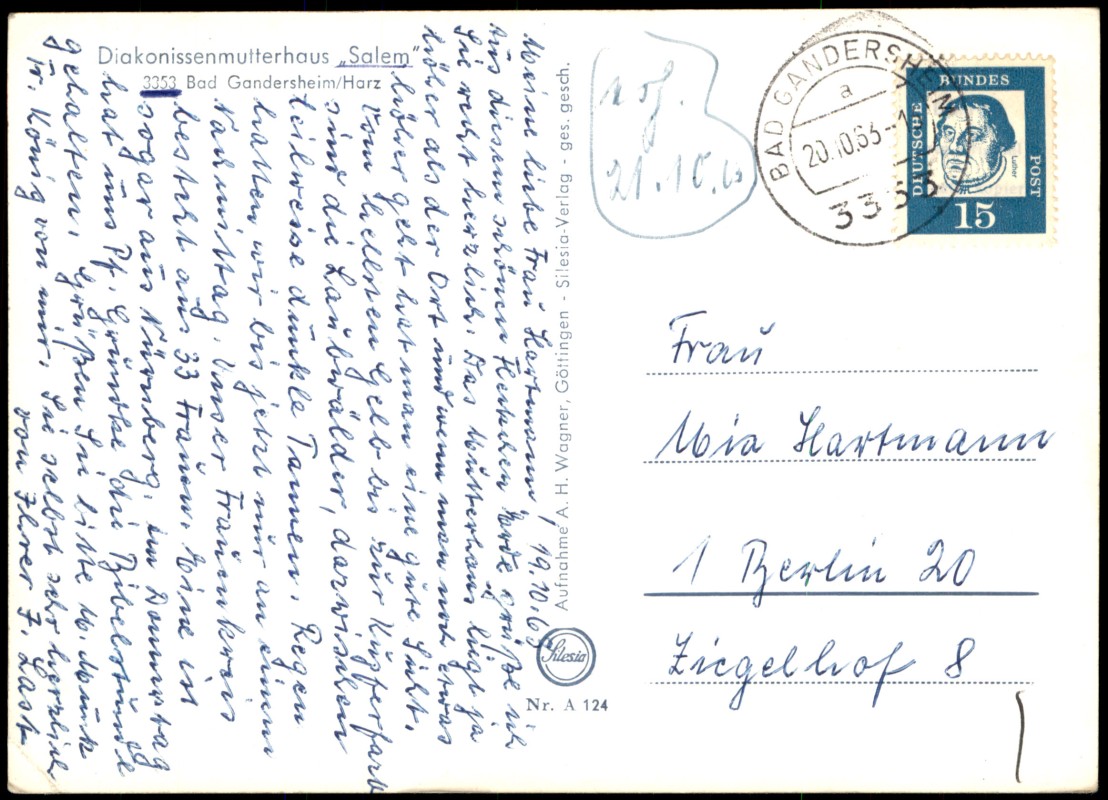 Diakonissenmutterhaus „Salem”
3353 Bad Gandersheim/Harz
Meine liebe Frau Hartmann, 19.10.63
Aus diesem schönen Fleckchen Erde grüße ich
Sie recht herzlich. Das Mutterhaus liegt ja
höher als der Ort und wenn man noch etwas
höher geht hat man eine gute Sicht.
Vom hellsten Gelb bis zur Kupferfarbe
sind die Laubwälder, dazwischen
teilweise dunkle Tannen. Regen
hatten wir bis jetzt nur an einem
Nachmittag. Unser Frauenkreis
besteht aus 33 Frauen. Eine ist
sogar aus Nürnberg. Am Donnerstag
hat uns Pf. die Bibelstunde
gehalten. Grüßen Sie bitte
Fr. König von mir. Sie selbst sehr herzlich
von Ihrer F. Last
Aufnahme A. H. Wagner, Göttingen - Silesia-Verlag - ges. gesch.
Silesia
Nr. A 124
21.10.63
BAD GANDERSHEIM
a
20.10.63-1
3353
DEUTSCHE
BUNDES
POST
Luther
15
Frau
Mia Hartmann
1 Berlin 20
Ziegelhof 8